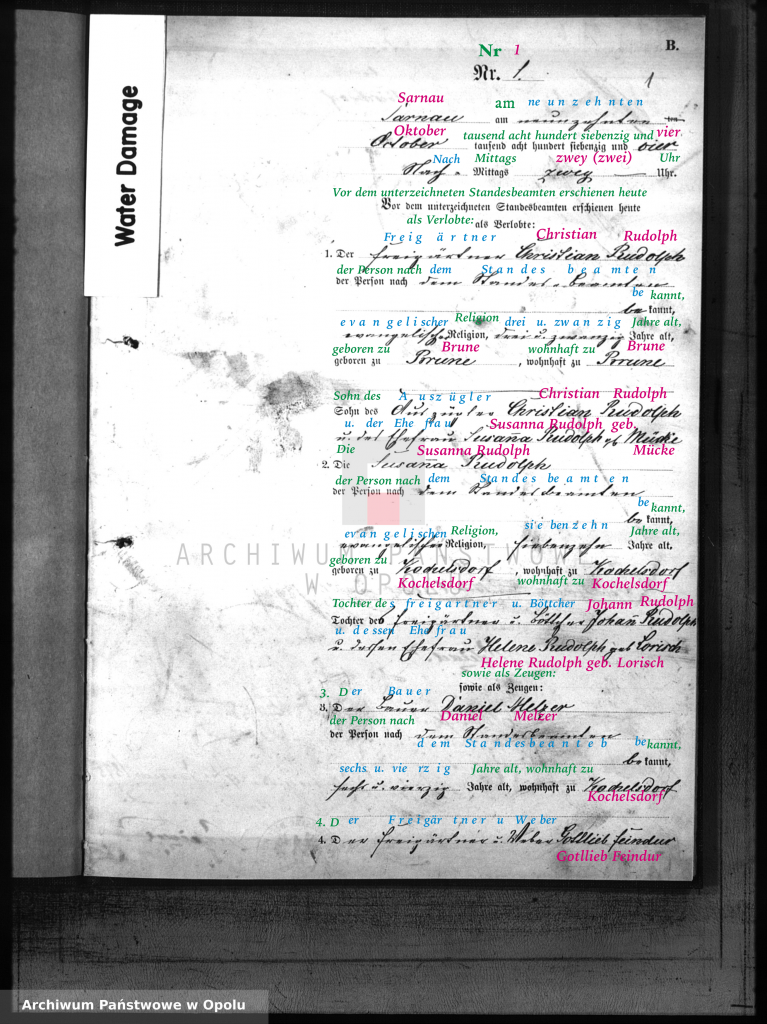 Water Damage
B.
Nr 1
Nr. 1.
1
Sarnau
am neunzehnten
Sarnau am neunzehnten
Oktober tausend acht hundert siebenzig und vier
October tausend acht hundert siebenzig und vier
Nach Mittags zwey (zwei) Uhr
Nach Mittags zwey Uhr.
Vor dem unterzeichneten Standesbeamten erschienen heute
Vor dem unterzeichneten Standesbeamten erschienen heute
als Verlobte:
als Verlobte:
Freigärtner Christian Rudolph
1. Der Freigärtner Christian Rudolph
der Person nach dem Standesbeamten
der Person nach dem Standesbeamten
bekannt,
bekannt,
evangelischer Religion drei u. zwanzig Jahre alt,
evangelischer Religion, drei u. zwanzig Jahre alt,
geboren zu Brune wohnhaft zu Brune
geboren zu Brune, wohnhaft zu Brune
Sohn des Auszügler Christian Rudolph
Sohn des Auszügler Christian Rudolph
u. der Ehe frau Susanna Rudolph geb.
u. des Ehefrau Susanna Rudolph geb. Mücke
Die Susanna Rudolph Mücke
2. Die Susanna Rudolph
der Person nach dem Standesbeamten
der Person nach dem Standesbeamten
bekannt,
bekannt,
evangelischen Religion, siebenzehn Jahre alt,
evangelischer Religion, siebenzehn Jahre alt,
ARCHIWUM PAŃSTWOWE
W OPOLU
geboren zu
geboren zu Kochelsdorf, wohnhaft zu Kochelsdorf
Kochelsdorf wohnhaft zu Kochelsdorf
Tochter des freigartner u. Böttcher Johann Rudolph
Tochter des Freigärtner u. Böttcher Johann Rudolph
u. dessen Ehefrau
u. dessen Ehefrau Helene Rudolph geb. Lorisch
Helene Rudolph geb. Lorisch
sowie als Zeugen:
sowie als Zeugen:
3. Der Bauer
3. Der Bauer Daniel Melzer
der Person nach Daniel Melzer
der Person nach dem Standesbeamten
dem Standesbeamteb bekannt,
bekannt,
sechs u. vierzig Jahre alt, wohnhaft zu
sechs u. vierzig Jahre alt, wohnhaft zu Kochelsdorf
Kochelsdorf
4. Der Freigärtner u Weber
4. Der Freigärtner u. Weber Gottlieb Feindur
Gotllieb Feindur
Archiwum Państwowe w Opolu